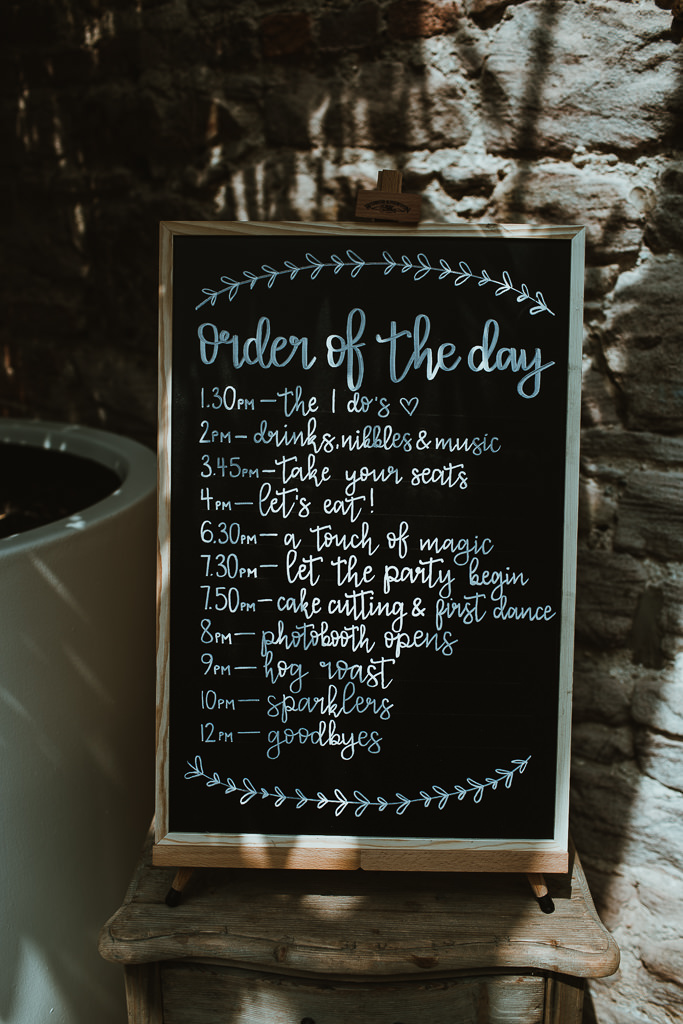 order of the day
1.30PM – the I do's ♡
2PM – drinks, nibbles & music
3.45PM – take your seats
4PM – let's eat!
6.30PM – a touch of magic
7.30PM – let the party begin
7.50PM – cake cutting & first dance
8PM – photobooth opens
9PM – hog roast
10PM – sparklers
12PM – goodbyes